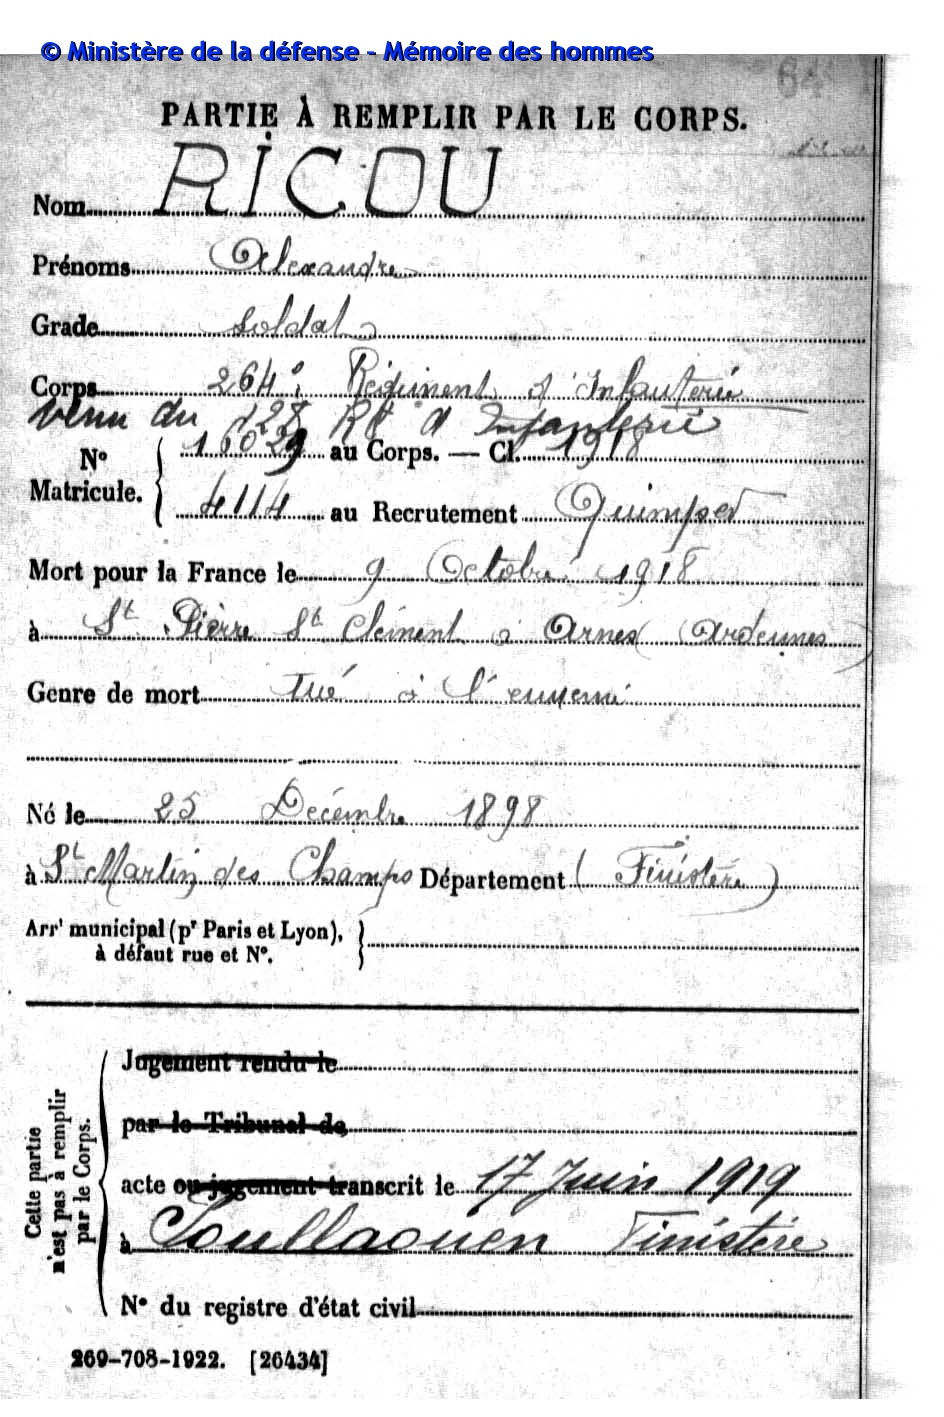 © Ministère de la défense - Mémoire des hommes
64
PARTIE À REMPLIR PAR LE CORPS.
Nom RICOU
Prénoms Alexandre
Grade soldat
Corps 264e Régiment d'Infanterie
venu du 128 Rt d'Infanterie
N° Matricule. 16029 au Corps. — Cl. 1918
4114 au Recrutement Quimper
Mort pour la France le 9 Octobre 1918
à St Pierre St Clément à Arnes (Ardennes)
Genre de mort tué à l'ennemi
Né le 25 Décembre 1898
à St Martin des Champs Département (Finistère)
Arrt municipal (pr Paris et Lyon),
à défaut rue et N°.
Cette partie n'est pas à remplir par le Corps.
Jugement rendu le
par le Tribunal de
acte ou jugement transcrit le 17 Juin 1919
à Poullaouen Finistère
N° du registre d'état civil
269-708-1922. [26434]